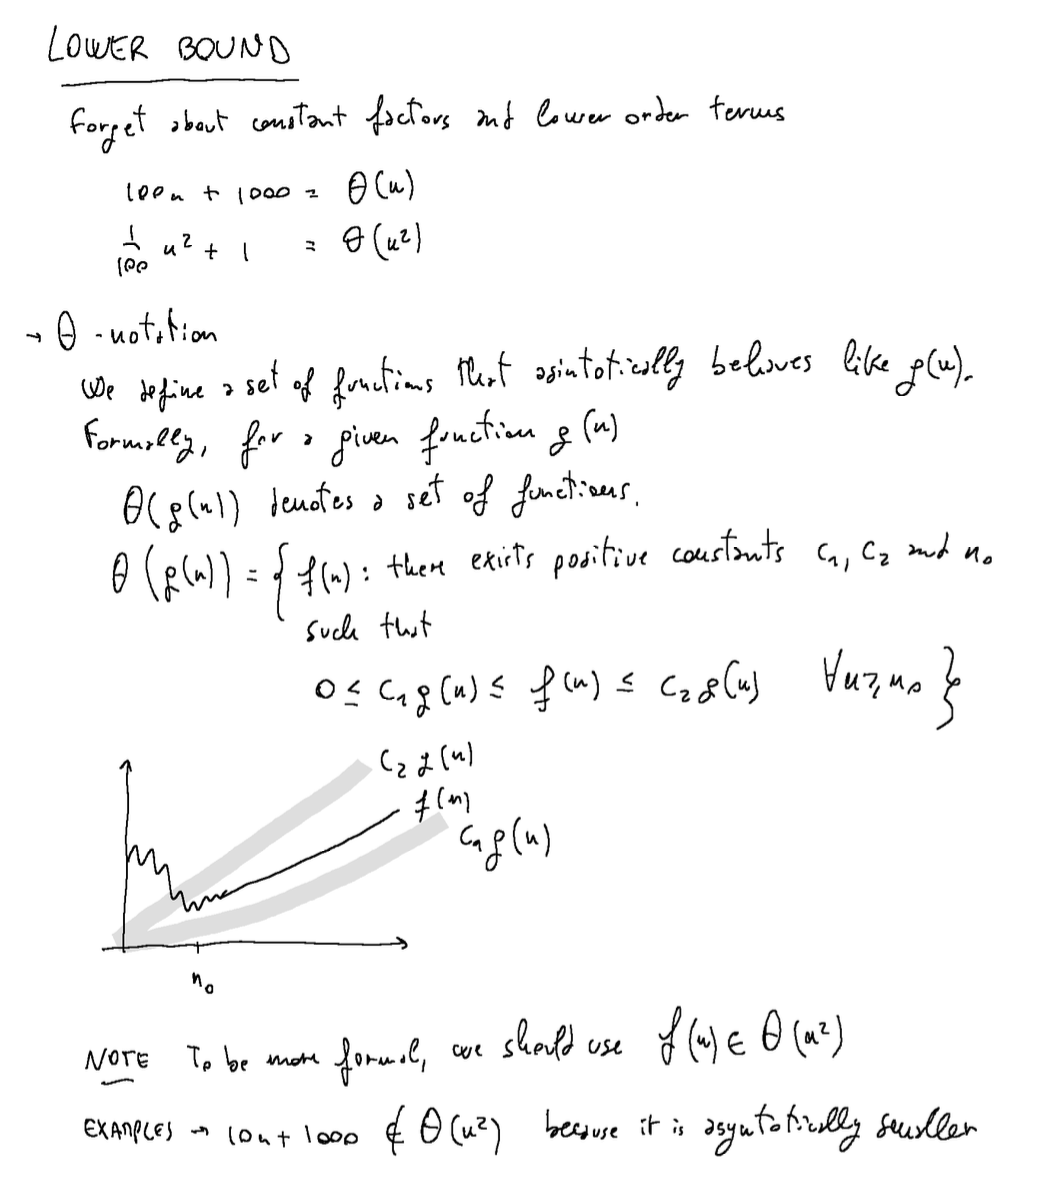 LOWER BOUND
Forget about constant factors and lower order terms
100n + 1000 = θ(n)
1/100 n² + 1 = θ(n²)
→ θ - notation
We define a set of functions that asintotically behaves like g(n).
Formally, for a given function g(n)
θ(g(n)) denotes a set of functions.
θ(g(n)) = { f(n) : there exists positive constants c₁, c₂ and n₀
such that
0 ≤ c₁ g(n) ≤ f(n) ≤ c₂ g(n) ∀n ≥ n₀ }
c₂ g(n)
f(n)
c₁ g(n)
n₀
NOTE To be more formal, we should use f(n) ∈ θ(n²)
EXAMPLES → 10n + 1000 ∉ θ(n²) because it is asyntotically smaller